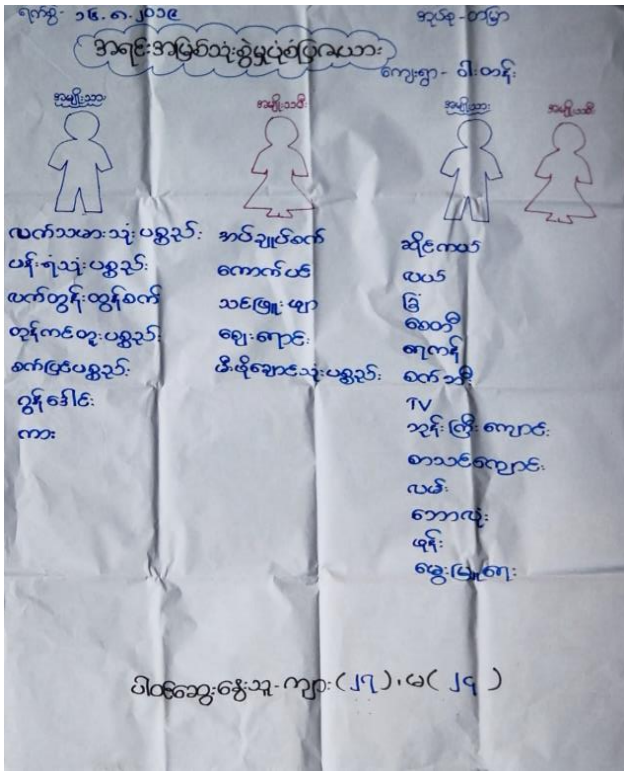 ရက်စွဲ - ၁၆.၈.၂၀၁၉
အုပ်စု - တမြာ
အရင်းအမြစ်သုံးစွဲမှုပုံစံပြဇယား
ကျေးရွာ - ဝါးတန်း
အမျိုးသား
အမျိုးသမီး
အမျိုးသား
အမျိုးသမီး
လက်သမားသုံးပစ္စည်း
ပန်းရံသုံးပစ္စည်း
လက်တွန်းထွန်စက်
တူန်ကင်တူးပစ္စည်း
စက်ပြင်ပစ္စည်း
ဂွန်ဒေါင်း
ကား
အပ်ချုပ်စက်
ကောက်ပင်
သင်ဖြူးဖျာ
ဈေးရောင်း
မီးဖိုချောင်သုံးပစ္စည်း
ဆိုင်ကယ်
လယ်
ခြံ
စေတီ
ရေကန်
စက်ဘီး
TV
ဘုန်းကြီးကျောင်း
စာသင်ကျောင်း
လမ်း
ဘောလုံး
ဖုန်း
မွေးမြူရေး
ပါဝင်ဆွေးနွေးသူ - ကျား (၂၇)၊ မ (၂၄)